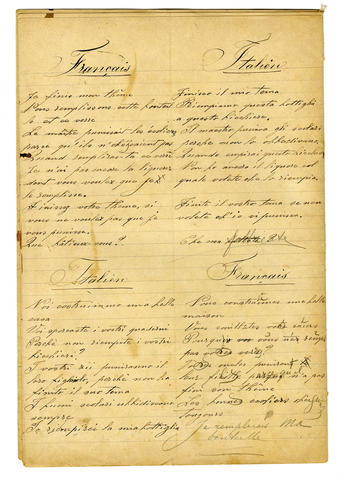 Français
Je finis mon thème
Nous remplissons cette
et ce verre
Le maître punissait les
parce qu'ils n'obéissaient pas
Quand rempliras-tu ce verre
Je n'ai pas encore la liqueur
dont vous voulez que je
le remplisse.
Finissez votre thème, si
vous ne voulez pas que je
vous punisse.
Que bâtirez-vous?
Italien
Finisco il mio tema
Riempiamo questa bottiglia
e questo bicchiere.
Il maestro puniva gli scolari
perchè non lo obbedivano.
Quando empirai questo bicchiere
Non ho ancora il liquore col
quale volete che lo riempia.
Finite il vostro tema se non
volete ch'io vi punisca.
Che
Italien
Noi costruimmo una bella
casa
Voi sporcaste i vostri quaderni
Perchè non riempite i vostri
bicchieri?
I vostri zii punirono il
loro figlio, perchè non ha
finito il suo tema
I buoni scolari ubbidivano
sempre
Io riempirei la mia bottiglia
Français
Nous construîmes une belle
maison
Vous votre
Pourquoi vous
pas votre verre
oncles punirent
pas
fini son thème
Les bonnes écoliers
toujours
Je remplirais ma
bouteille